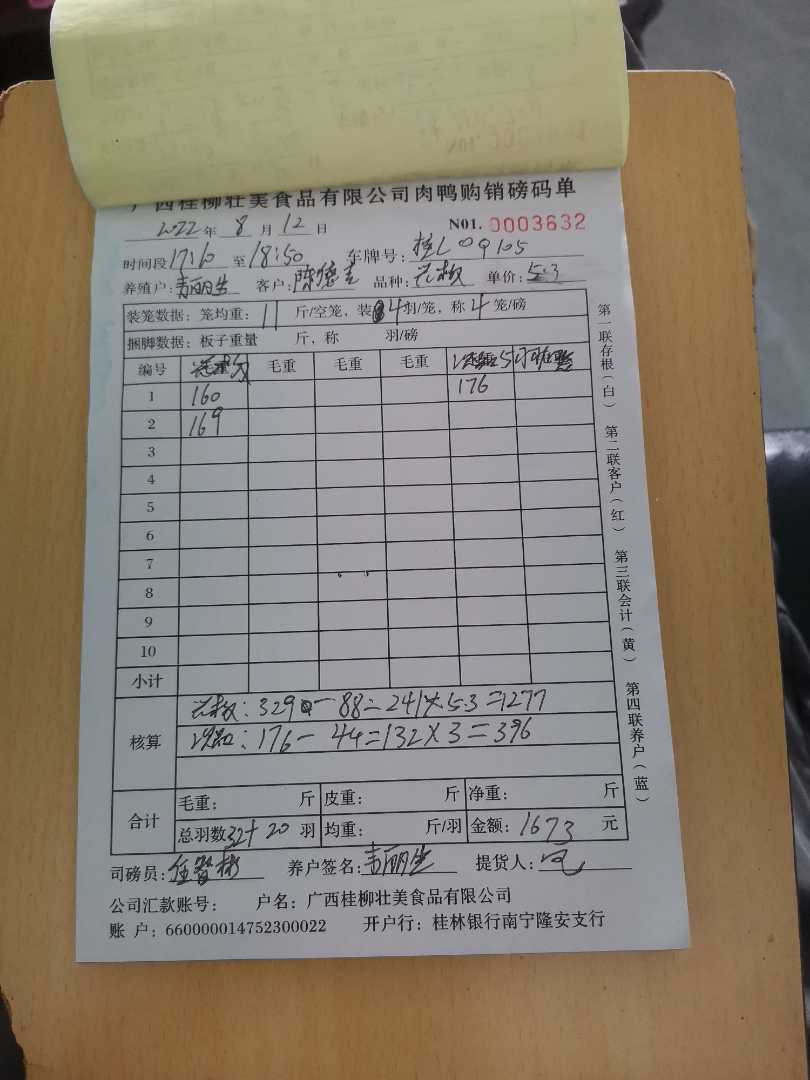 广西桂柳壮美食品有限公司肉鸭购销磅码单
2022年 8 月 12 日 N01. 0003632
时间段 17:10 至 18:50 车牌号: 桂L09105
养殖户: 韦丽生 客户: 陈德 品种: 花板 单价: 5.3
装笼数据: 笼均重: 11 斤/空笼, 装 4 羽/笼, 称 4 笼/磅
捆脚数据: 板子重量 斤, 称 羽/磅
编号 毛重 毛重 毛重
1 160 176
2 169
3
4
5
6
7
8
9
10
小计
核算
花板: 329 - 88 = 241 × 5.3 = 1277
次品: 176 - 44 = 132 × 3 = 396
合计
毛重: 斤 皮重: 斤 净重: 斤
总羽数 32+20 羽 均重: 斤/羽 金额: 1673 元
司磅员: 养户签名: 韦丽生 提货人:
公司汇款账号: 户名: 广西桂柳壮美食品有限公司
账 户: 660000014752300022 开户行: 桂林银行南宁隆安支行
第一联存根(白) 第二联客户(红) 第三联会计(黄) 第四联养户(蓝)